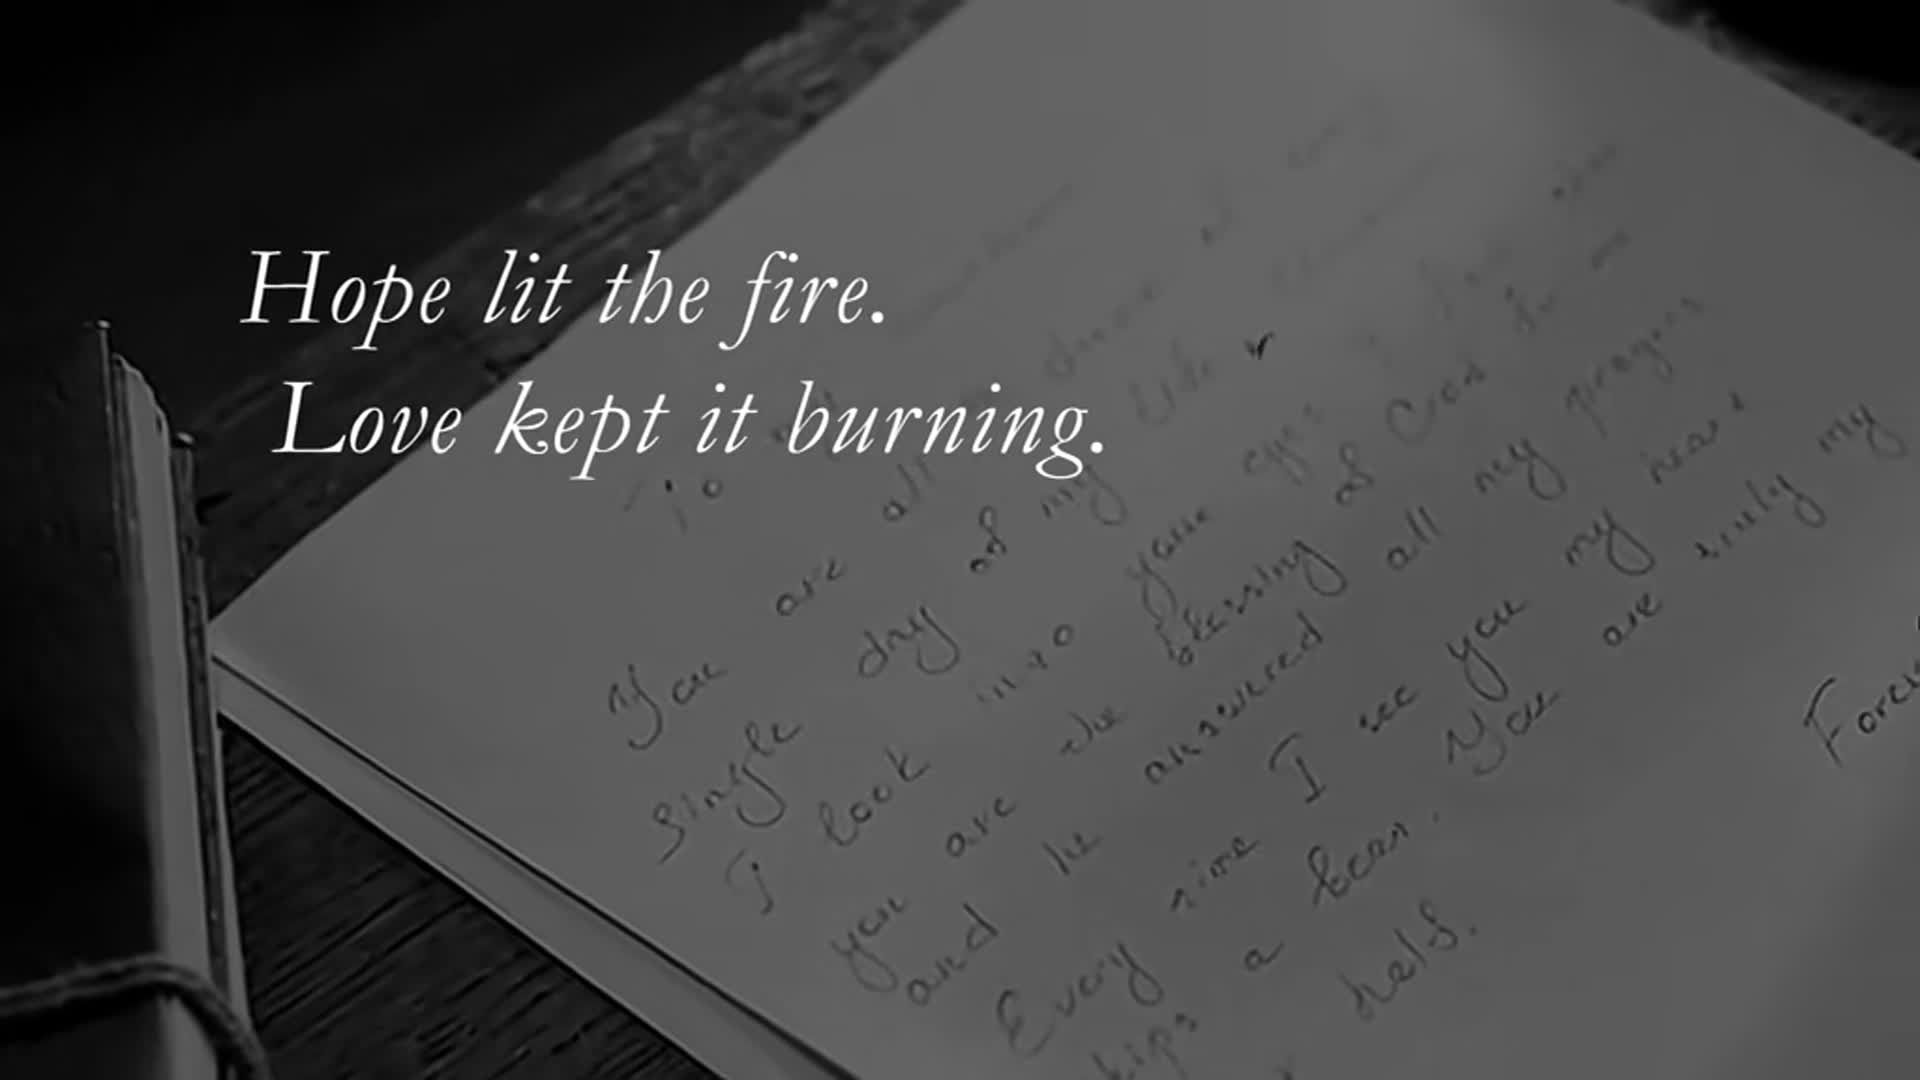 Hope lit the fire.
Love kept it burning.
To
You are all
single day of my life
I look into your eyes
you are the blessing of God
and he answered all my prayers
Every time I see you my heart
skips a beat. You are truly my
half.
Forev